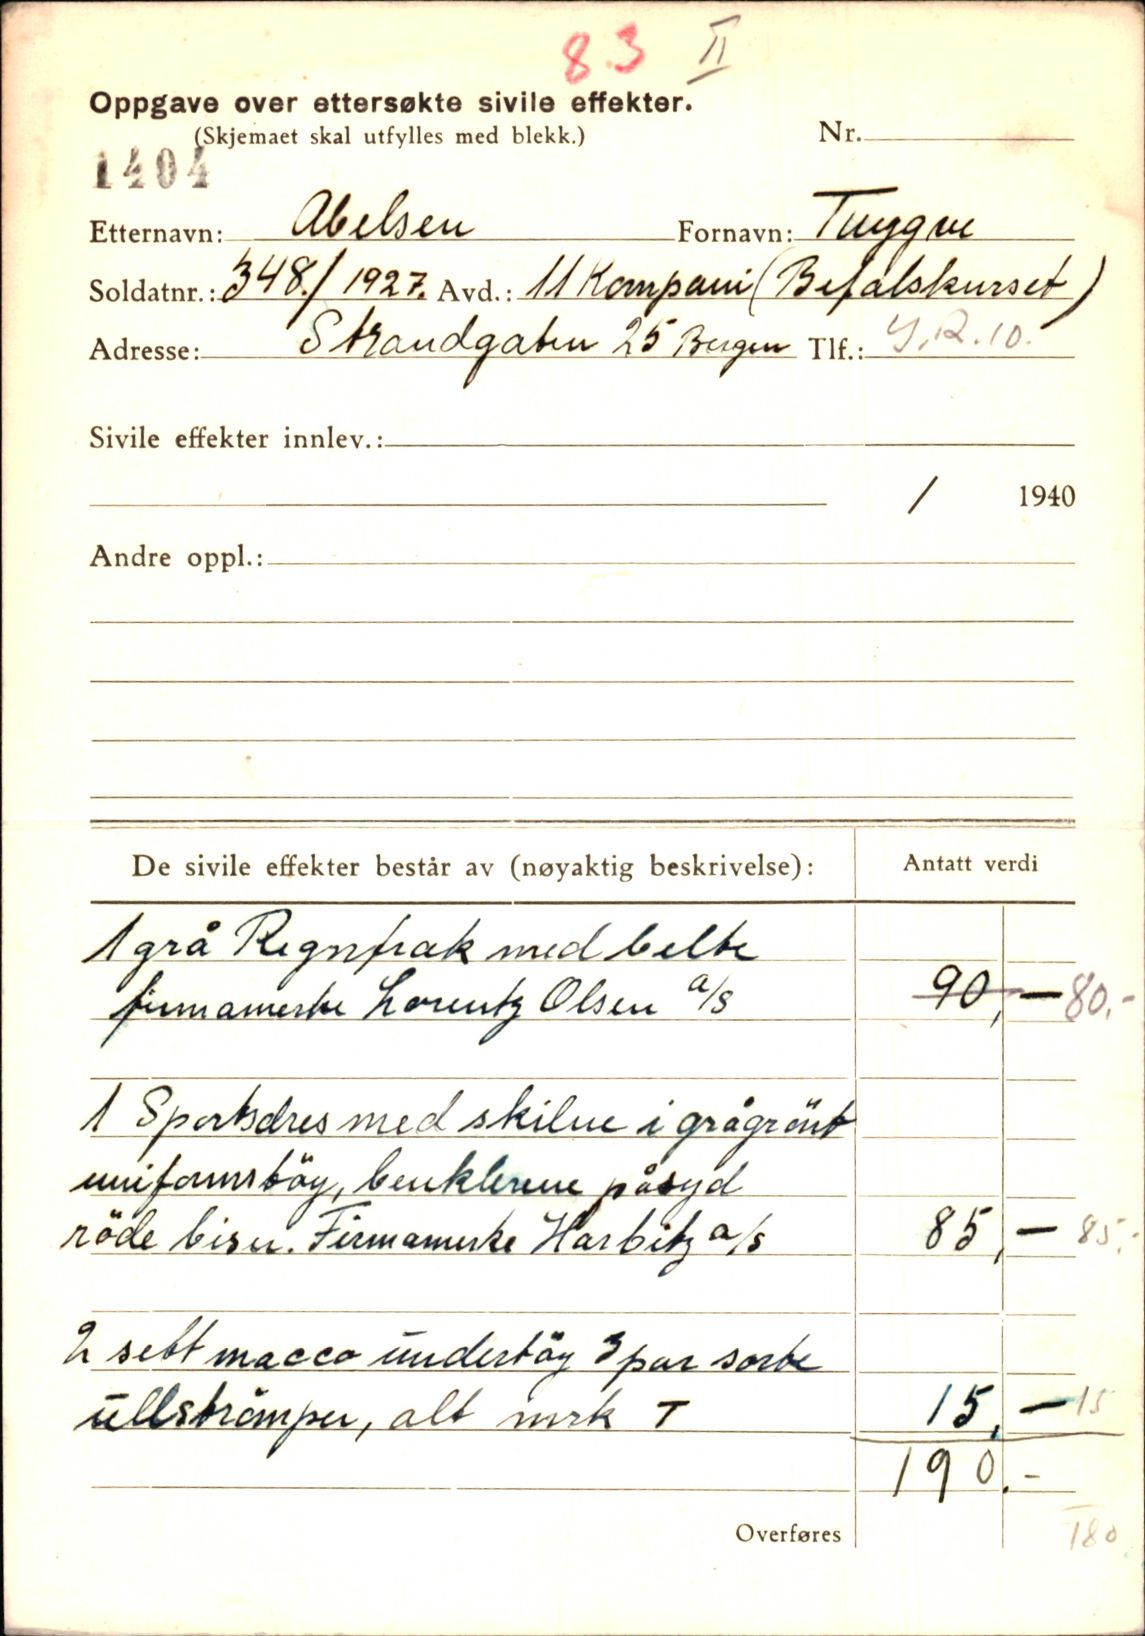 83 II
Oppgave over ettersøkte sivile effekter.
(Skjemaet skal utfylles med blekk.)
Nr.
1404
Etternavn: Abelsen Fornavn: Trygve
Soldatnr.: 348./1927. Avd.: 11 Kompani (Befalskurset)
Adresse: Strandgaten 25 Bergen Tlf.: I.R.10.
Sivile effekter innlev.:
/ 1940
Andre oppl.:
De sivile effekter består av (nøyaktig beskrivelse): Antatt verdi
1 grå Regnfrak med belte
firmamerke Lorentz Olsen a/s 90,— 80.-
1 Sportsdres med skilue i grågrönt
uniformstöy, benklerene påsyd
röde biser. Firmamerke Harbitz a/s 85,— 85.-
2 sett macco undertöy 3 par sorte
ullströmper, alt mrk T 15,— 15
190.-
Overføres 180